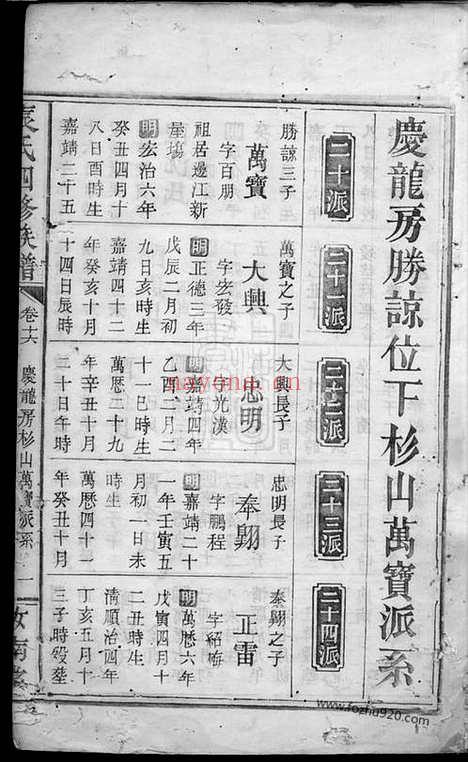 慶龍房勝諒位下杉山萬寶派系
二十派
二十一派
二十二派
二十三派
二十四派
勝諒三子
萬寶
字百朋
祖居邊江新
屋塲
明宏治六年
癸丑四月十
八日酉時生
嘉靖二十五
萬寶之子
大興
字宏發
明正德三年
戊辰二月初
九日亥時生
嘉靖四十二
年癸亥十月
十四日辰時
大興長子
忠明
字光漢
明嘉靖四年
乙酉二月二
十一巳時生
萬曆二十九
年辛丑十月
二十日午時
忠明長子
奉翱
字鵬程
明嘉靖二十
一年壬寅五
月初一日未
時生
萬曆四十一
年癸丑十月
奉翱之子
正雷
字紹
明萬曆六年
戊寅四月十
二丑時生
清順治四年
丁亥五月十
三子時殁塟
氏四修族譜
卷十六
慶龍房杉山萬寶派系
一
汝南
nayona.cn
www.fozhu920.com